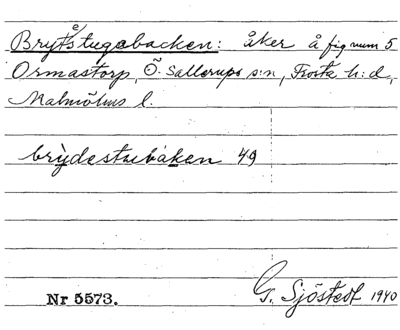 Brytestugebacken: åker å fig num 5
Ormastorp, Ö. Sallerups s:n, Frosta h:d,
Malmöhus l.
brydestuebakken 49
Nr 5573.
G. Sjöstedt 1940